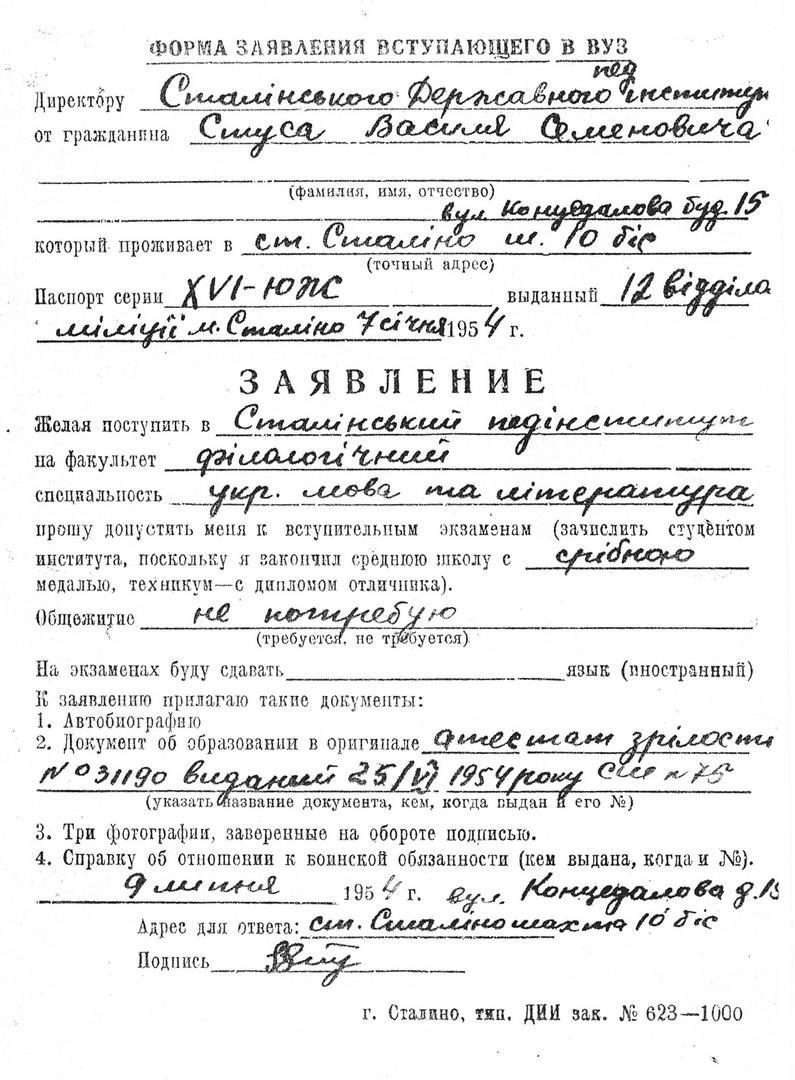 ФОРМА ЗАЯВЛЕНИЯ ВСТУПАЮЩЕГО В ВУЗ
Директору Сталінського Державного пед інституту
от гражданина Стуса Василя Семеновича
(фамилия, имя, отчество)
вул. Концедалова буд 15
который проживает в ст. Сталіно ш. 10 біс
(точный адрес)
Паспорт серии XVI-ЮЖС выданный 12 відділа
міліції м. Сталіно 7 січня 1954 г.
ЗАЯВЛЕНИЕ
Желая поступить в Сталінський педінститут
на факультет філологічний
специальность укр. мова та література
прошу допустить меня к вступительным экзаменам (зачислить студентом
института, поскольку я закончил среднюю школу с срібною
медалью, техникум—с дипломом отличника).
Общежитие не потребую
(требуется, не требуется)
На экзаменах буду сдавать язык (иностранный)
К заявлению прилагаю такие документы:
1. Автобиографию
2. Документ об образовании в оригинале атестат зрілости
№ 031190 виданий 25/VI 1954 року СШ № 75
(указать название документа, кем, когда выдан и его №)
3. Три фотографии, заверенные на обороте подписью.
4. Справку об отношении к воинской обязанности (кем выдана, когда и №).
9 липня 1954 г. вул. Концедалова д. 15
Адрес для ответа: ст. Сталіно шахта 10 біс
Подпись
г. Сталино, тип. ДИИ зак. № 623—1000